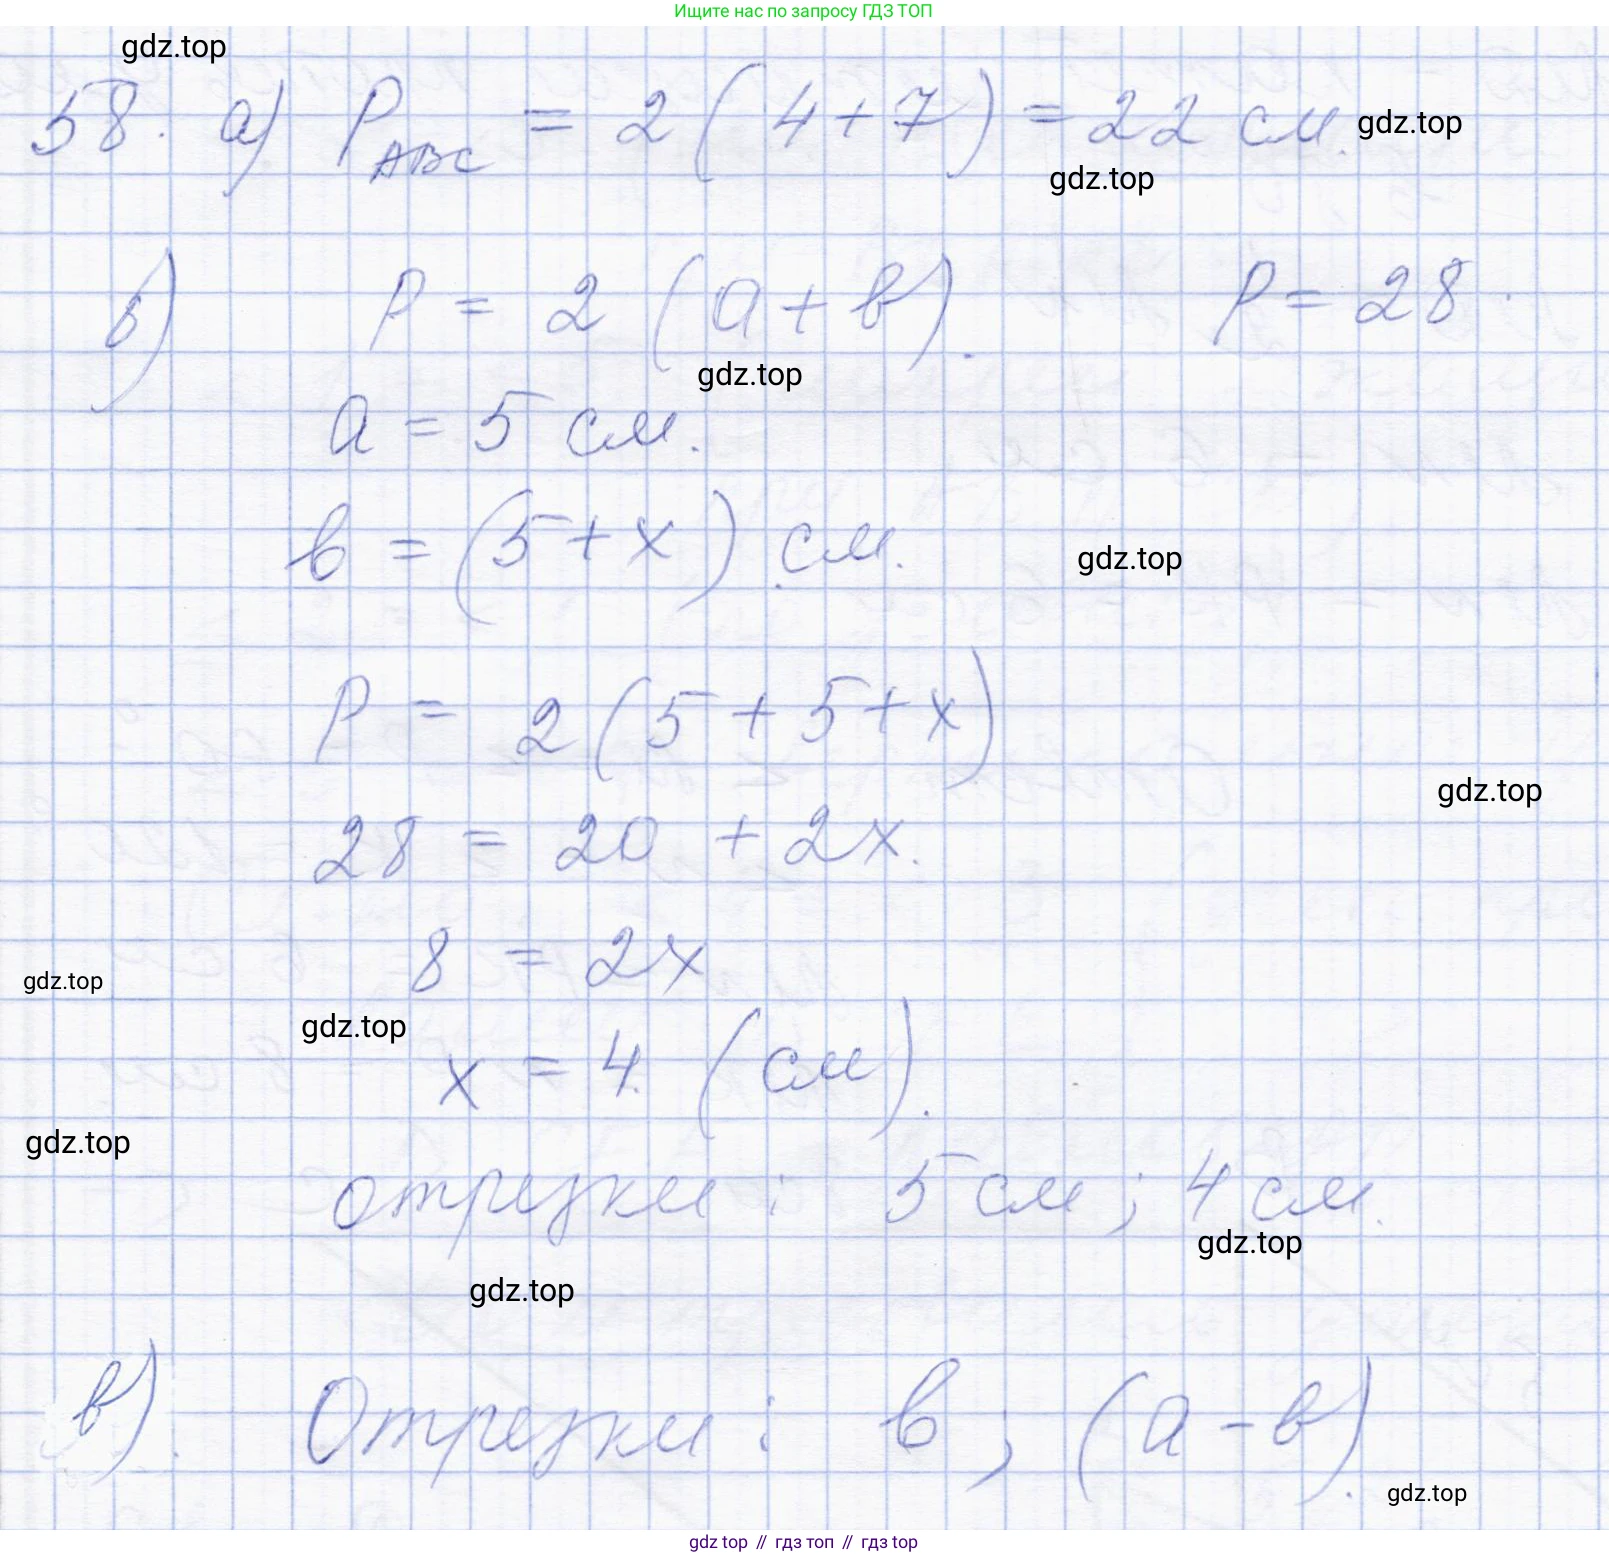 Ищите нас по запросу ГДЗ ТОП
gdz.top
58. а) P_ABC = 2 ( 4 + 7 ) = 22 см. gdz.top
gdz.top
б) P = 2 ( a + b ). P = 28.
gdz.top
a = 5 см.
b = ( 5 + x ) см.
gdz.top
P = 2 ( 5 + 5 + x )
gdz.top
28 = 20 + 2x.
8 = 2x
gdz.top
gdz.top
x = 4. ( см ).
gdz.top
отрезки : 5 см ; 4 см.
gdz.top
gdz.top
в). Отрезки : b ; ( a - b ).
gdz.top
gdz top // гдз топ // gdz top